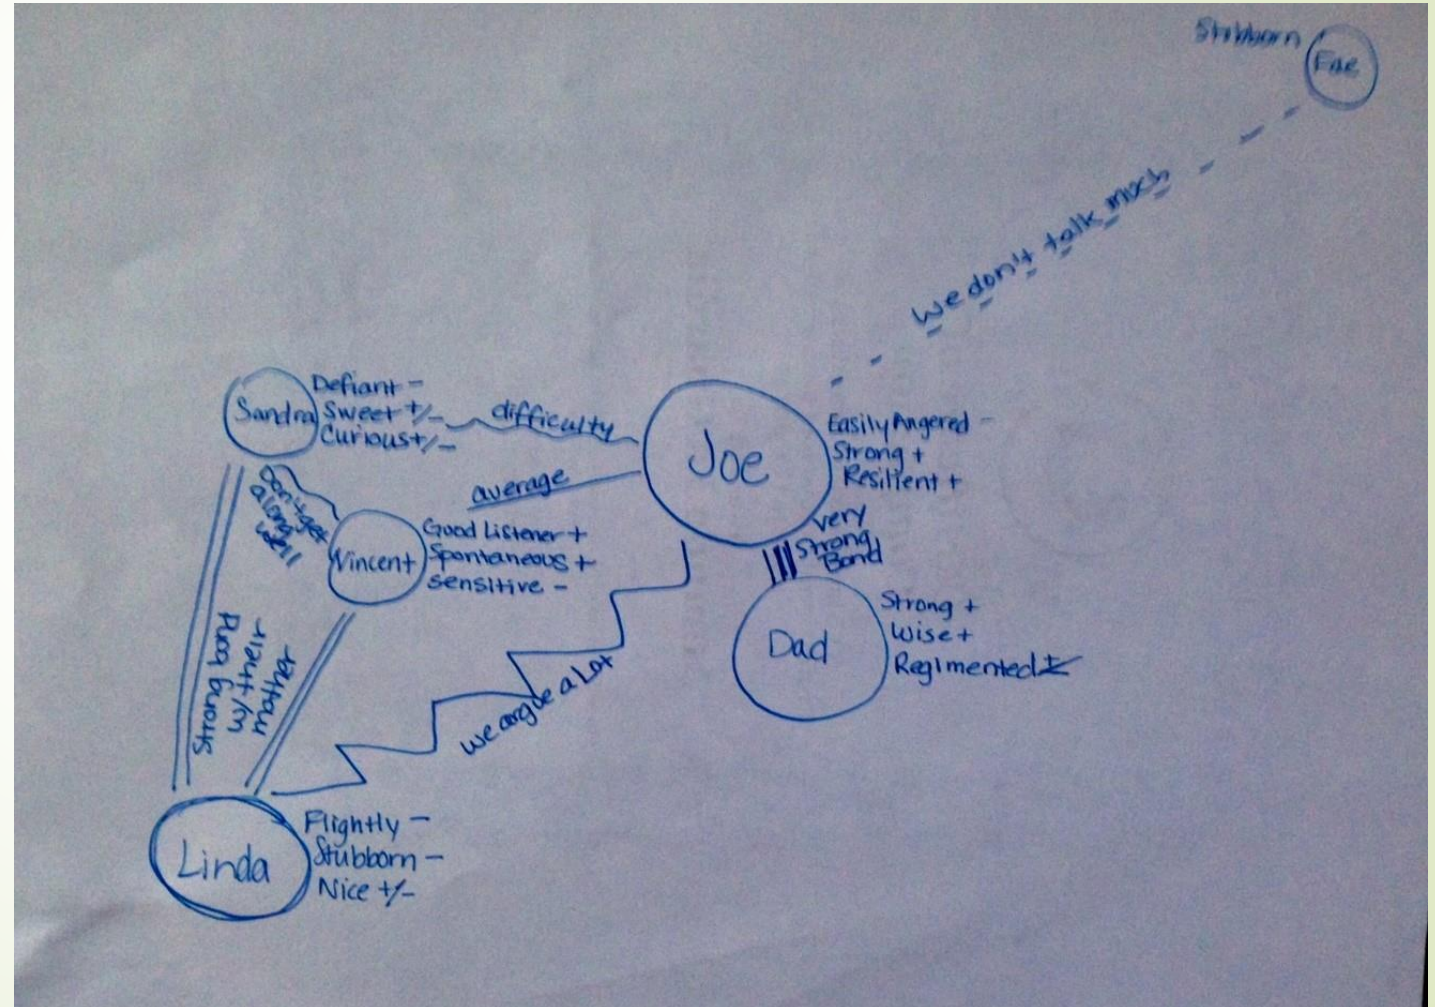 Stubborn
Fae
We don't talk much
Sandra
Defiant -
Sweet +/-
Curious +/-
difficulty
Joe
Easily Angered -
Strong +
Resilient +
average
Don't get
along
well
Vincent
Good Listener +
Spontaneous +
sensitive -
very
Strong
Bond
Dad
Strong +
Wise +
Regimented ±
Strong bond
w/ their
mother
we argue a lot
Linda
Flightly -
Stubborn -
Nice +/-